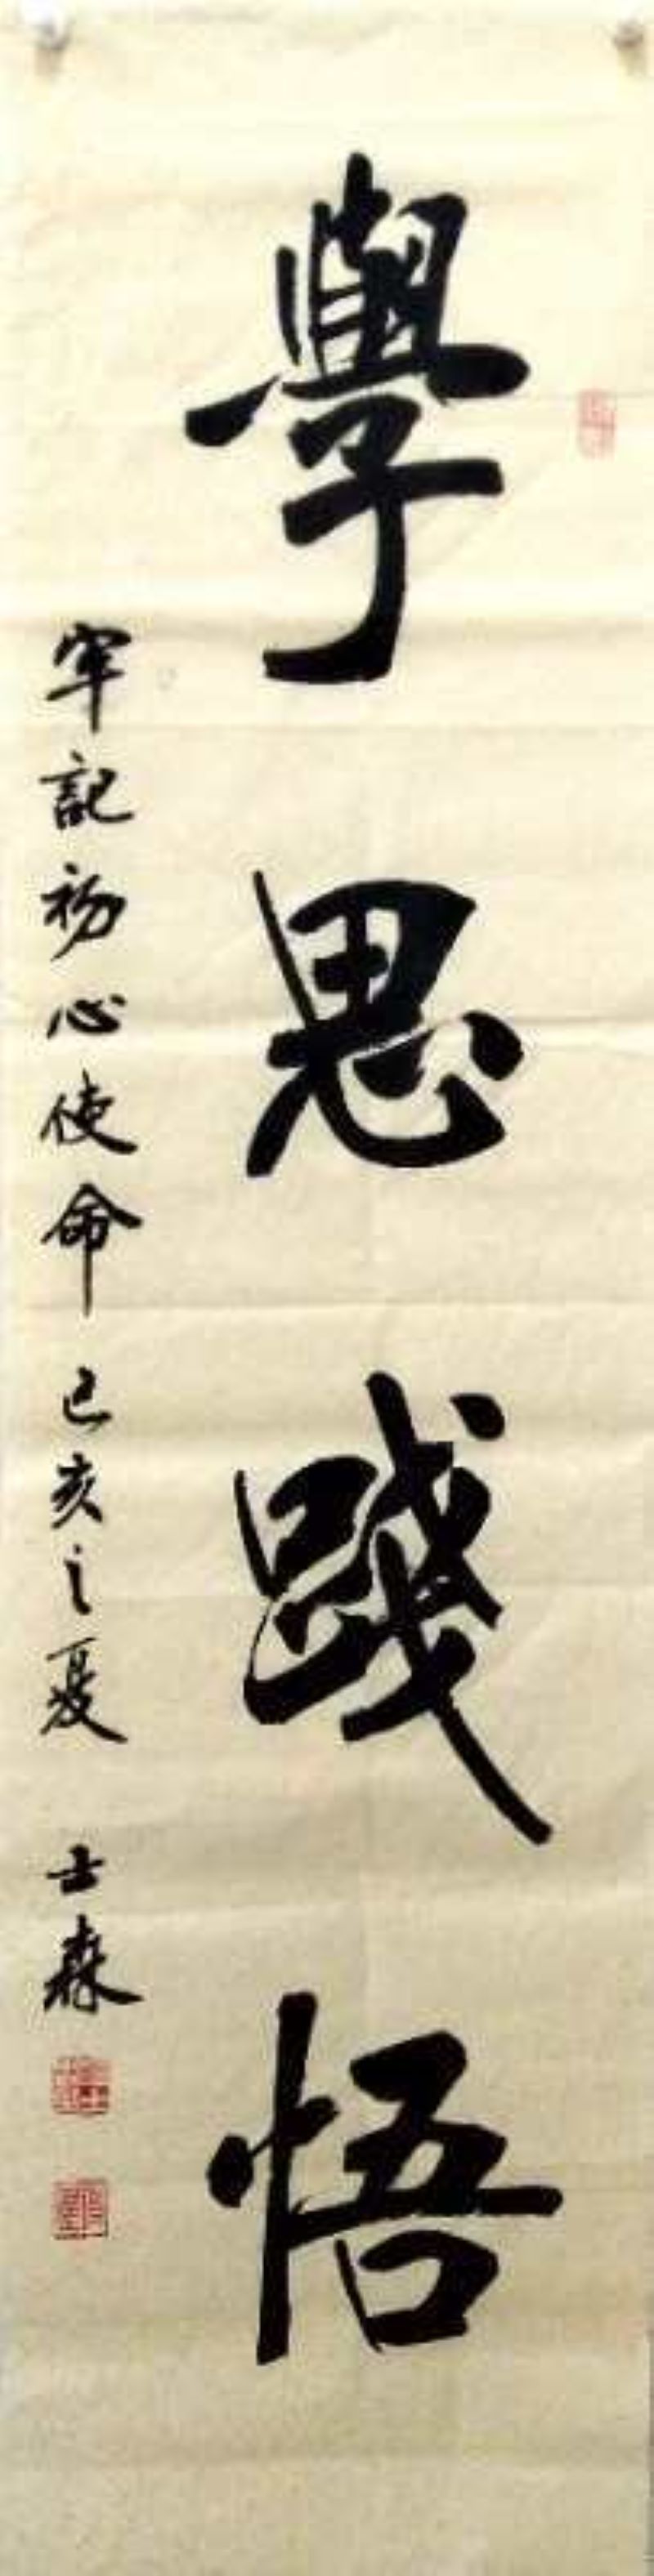 學思踐悟
牢記初心使命 己亥之夏 士森